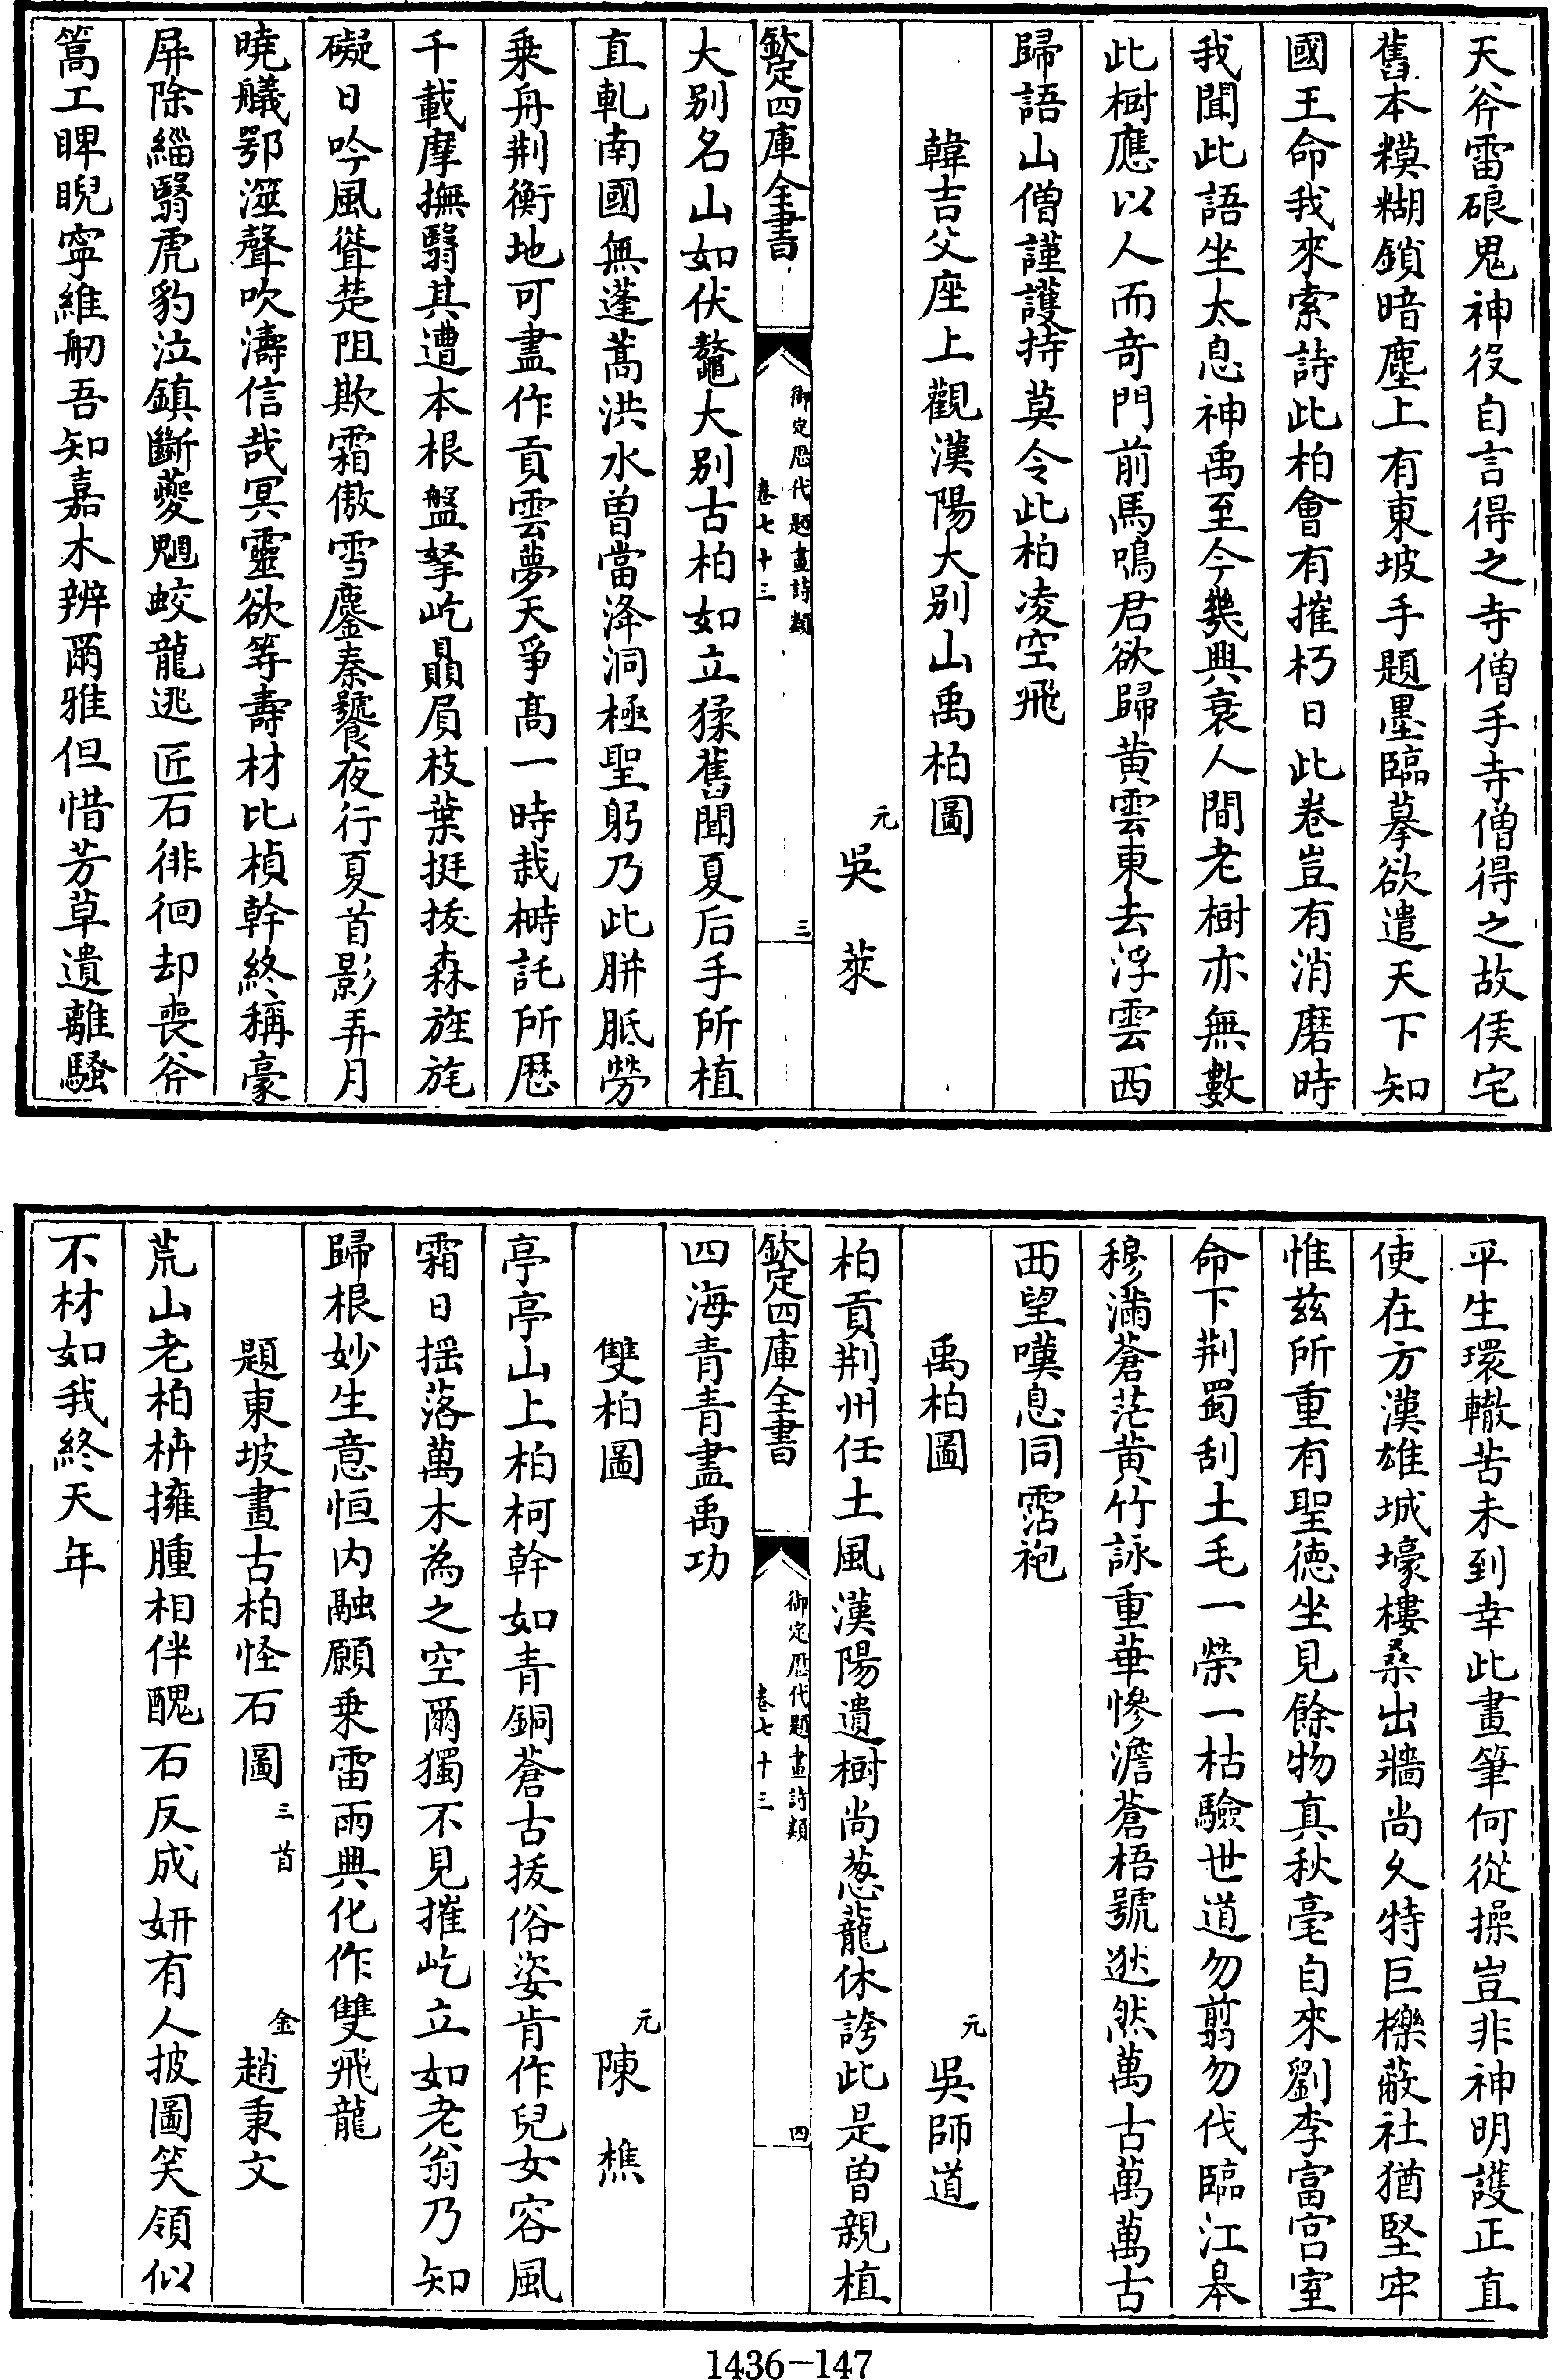 天斧雷硠鬼神役自言得之寺僧手寺僧得之故侯宅
舊本糢糊鎖暗塵上有東坡手題墨臨摹欲遣天下知
國王命我來索詩此柏會有摧朽日此卷豈有消磨時
我聞此語坐太息神禹至今幾興衰人間老樹亦無數
此樹應以人而奇門前馬鳴君欲歸黄雲東去浮雲西
歸語山僧謹護持莫令此柏凌空飛
韓吉父座上觀漢陽大别山禹柏圖
元吳萊
欽定四庫全書
御定歴代題畫詩類
卷七十三
三
大别名山如伏鼇大别古柏如立猱舊聞夏后手所植
直軋南國無蓬蒿洪水曽當洚洞極聖躬乃此胼胝勞
乗舟荆衡地可盡作貢雲夢天爭髙一時栽榯託所歴
千載摩撫翳其遭本根盤拏屹贔屓枝葉挺拔森旌旄
礙日吟風聳楚阻欺霜傲雪鏖秦饕夜行夏首影弄月
曉艤鄂渚聲吹濤信哉冥靈欲等壽材比楨幹終稱豪
屏除緇翳虎豹泣鎮斷夔魍蛟龍逃匠石徘徊却喪斧
篙工睥睨寧維舠吾知嘉木辨爾雅但惜芳草遺離騷
平生環轍苦未到幸此畫筆何從操豈非神明護正直
使在方漢雄城壕樓桑出牆尚乆特巨櫟蔽社猶堅牢
惟兹所重有聖徳坐見餘物真秋毫自來劉李富宫室
命下荆蜀刮土毛一榮一枯驗世道勿翦勿伐臨江皋
穆滿蒼茫黄竹詠重華慘澹蒼梧號逖然萬古萬萬古
西望嘆息同霑袍
禹柏圖
元吳師道
柏貢荆州任土風漢陽遺樹尚葱蘢休誇此是曽親植
欽定四庫全書
御定歴代題畫詩類
卷七十三
四
四海青青盡禹功
雙柏圖
元陳樵
亭亭山上柏柯幹如青銅蒼古拔俗姿肯作兒女容風
霜日揺落萬木為之空爾獨不見摧屹立如老翁乃知
歸根妙生意恒内融願乗雷雨興化作雙飛龍
題東坡畫古柏怪石圖三首
金趙秉文
荒山老柏枿擁腫相伴醜石反成妍有人披圖笑領似
不材如我終天年
1436-147